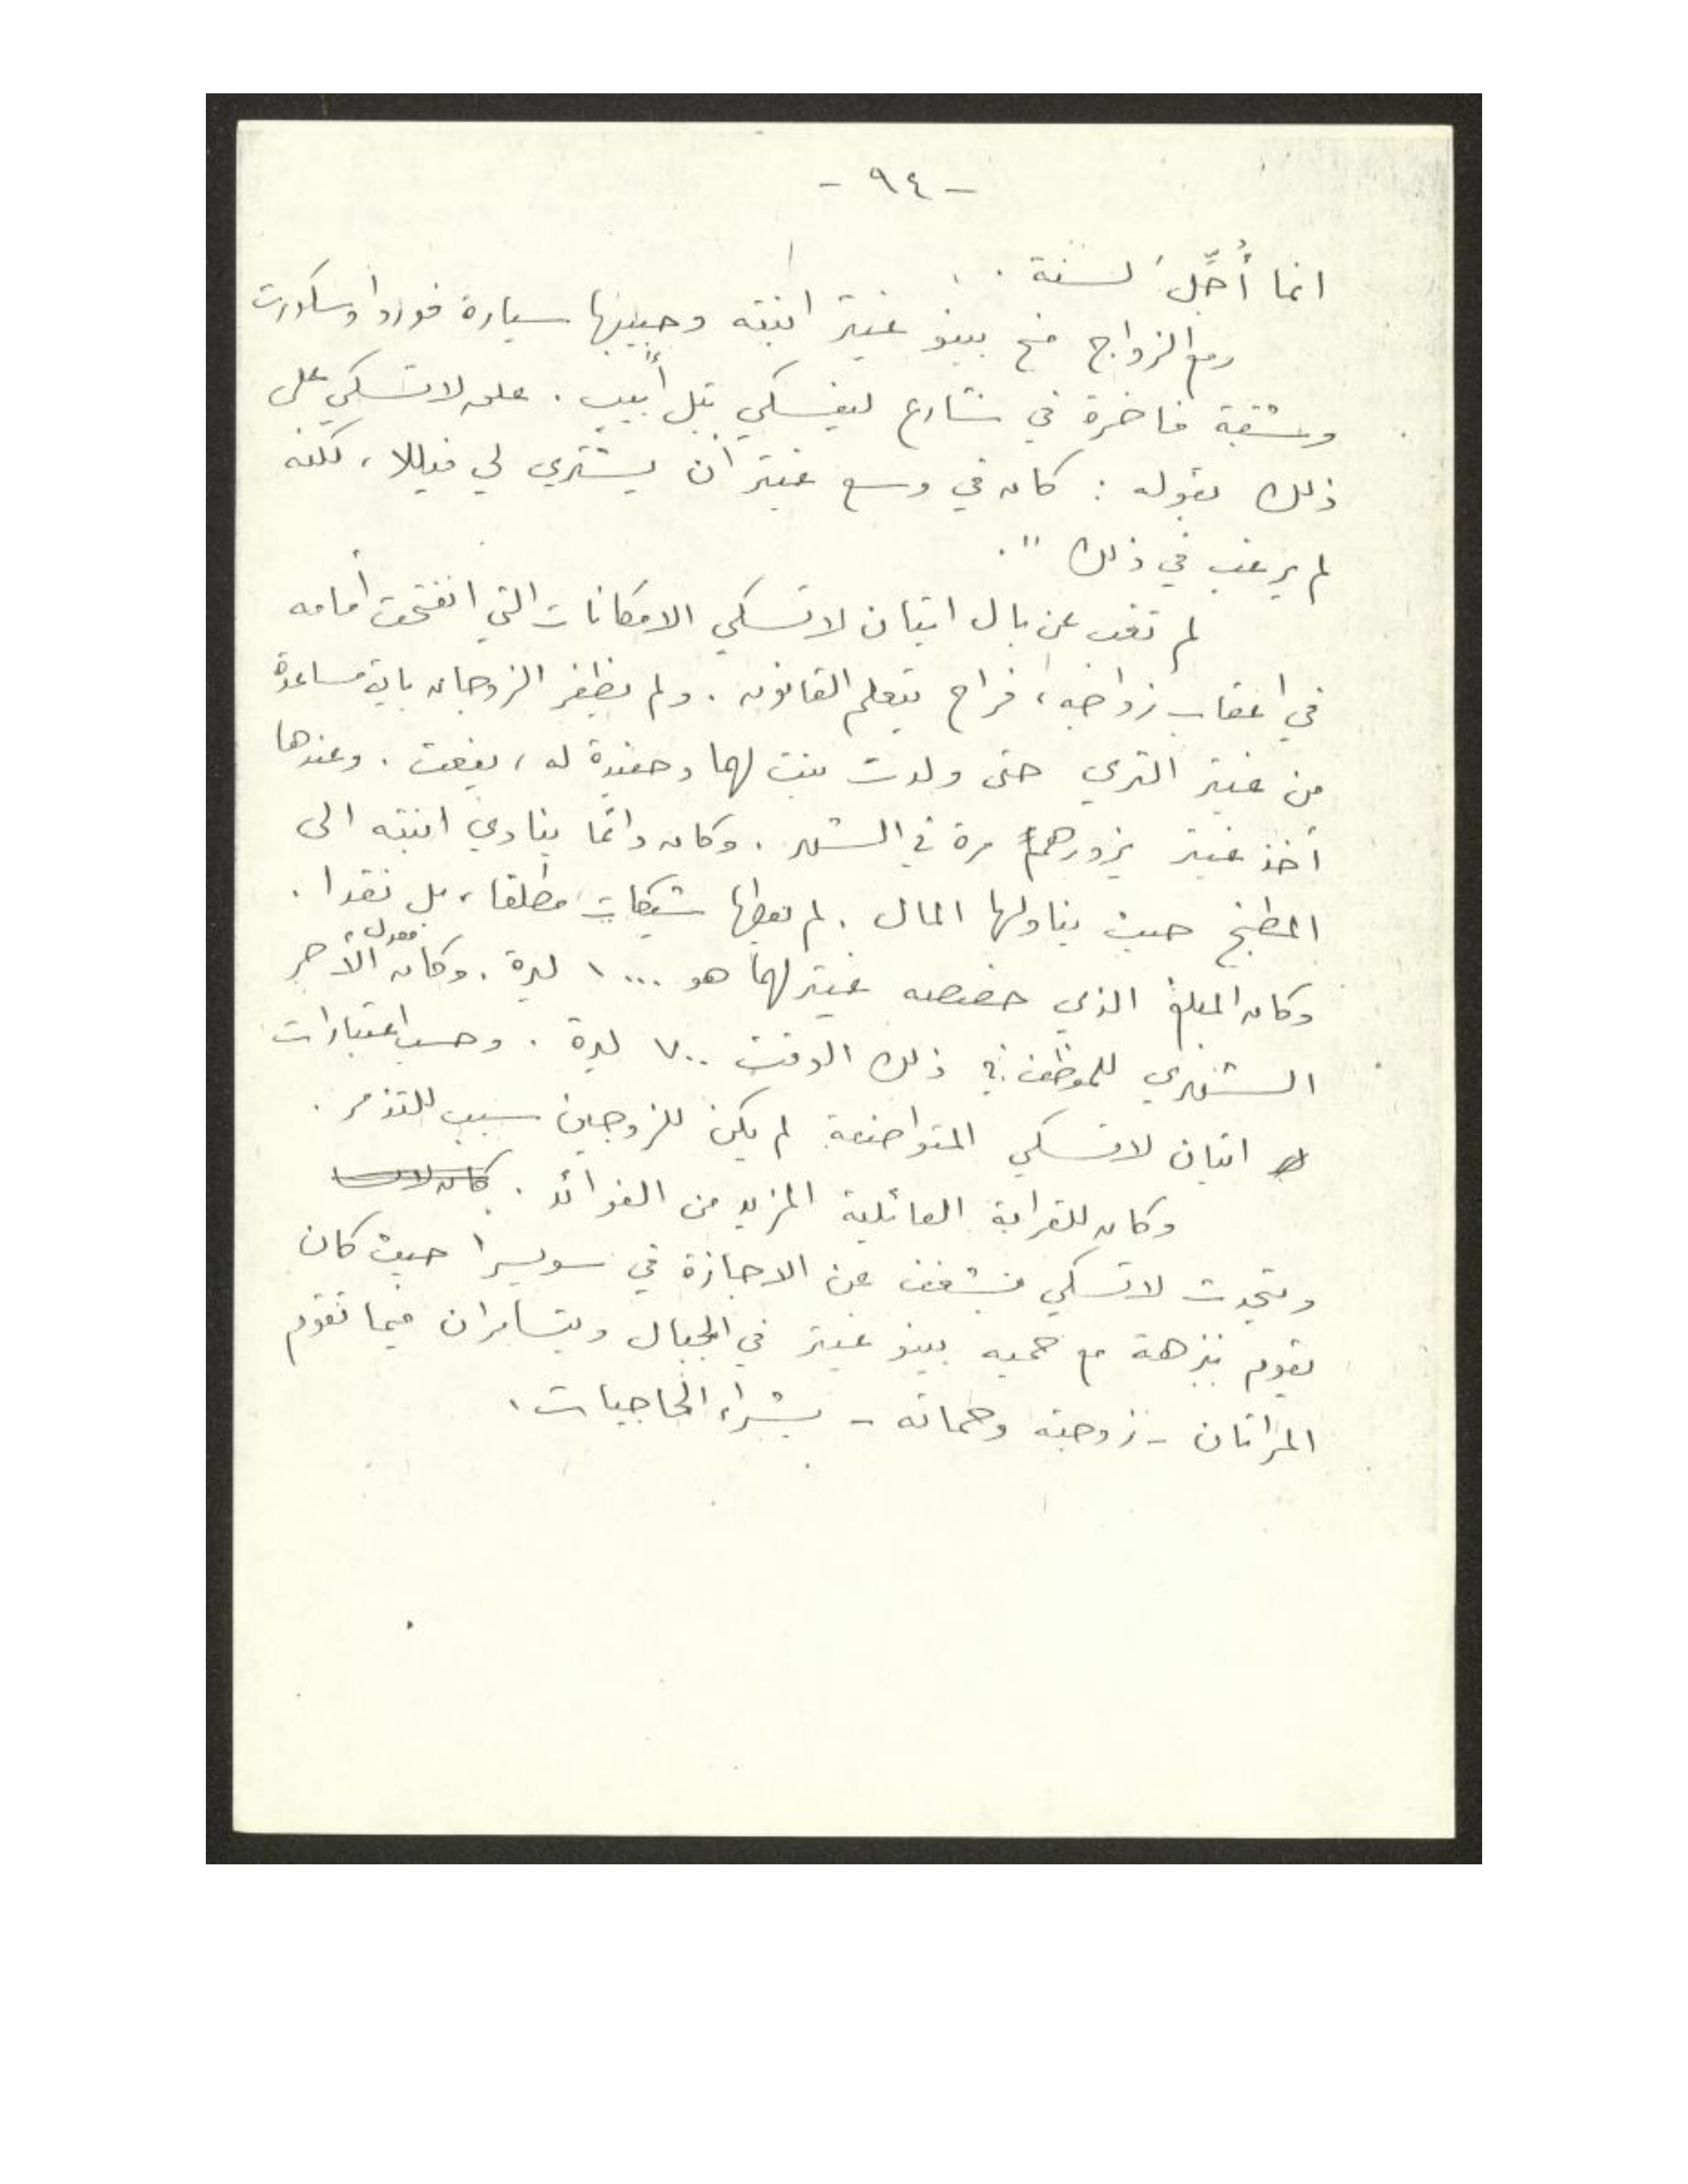 - ٩٤ -
انما أُجِّلَ لسنة .
ومع الزواج منح بينو غيتر ابنته وحبيبها سيارة فورد اوسكورت
وشقة فاخرة في شارع ليفسكي بتل أبيب . علق لاتسكي على
ذلك بقوله : كان في وسع غيتر أن يشتري لي فيللا ، لكنه
لم يرغب في ذلك " .
لم تغب عن بال ايتان لاتسكي الامكانات التي انفتحت أمامه
في اعقاب زواجه ، فراح يتعلم القانون . ولم يظفر الزوجان باية مساعدة
من غيتر الثري حتى ولدت بنت لهما وحفيدة له ، يفعت . وعندها
أخذ غيتر يزورهم مرة في الشهر . وكان دائما ينادي ابنته الى
المطبخ حيث يناولها المال . لم يعطها شيكات مطلقا ، بل نقدا .
وكان المبلغ الذي خصصه غيتر لهما هو ١٠٠٠ ليرة . وكان معدل الأجر
الشهري للموظف في ذلك الوقت ٧٠٠ ليرة . وحسب اعتبارات
ايتان لاتسكي المتواضعة لم يكن للزوجين سبب للتذمر .
وكان للقرابة العائلية المزيد من الفوائد .
وتحدث لاتسكي بشغف عن الاجازة في سويسرا حيث كان
يقوم بنزهة مع حميه بينو غيتر في الجبال ويتسامران فيما تقوم
المراتان - زوجته وحماته - بشراء الحاجيات .